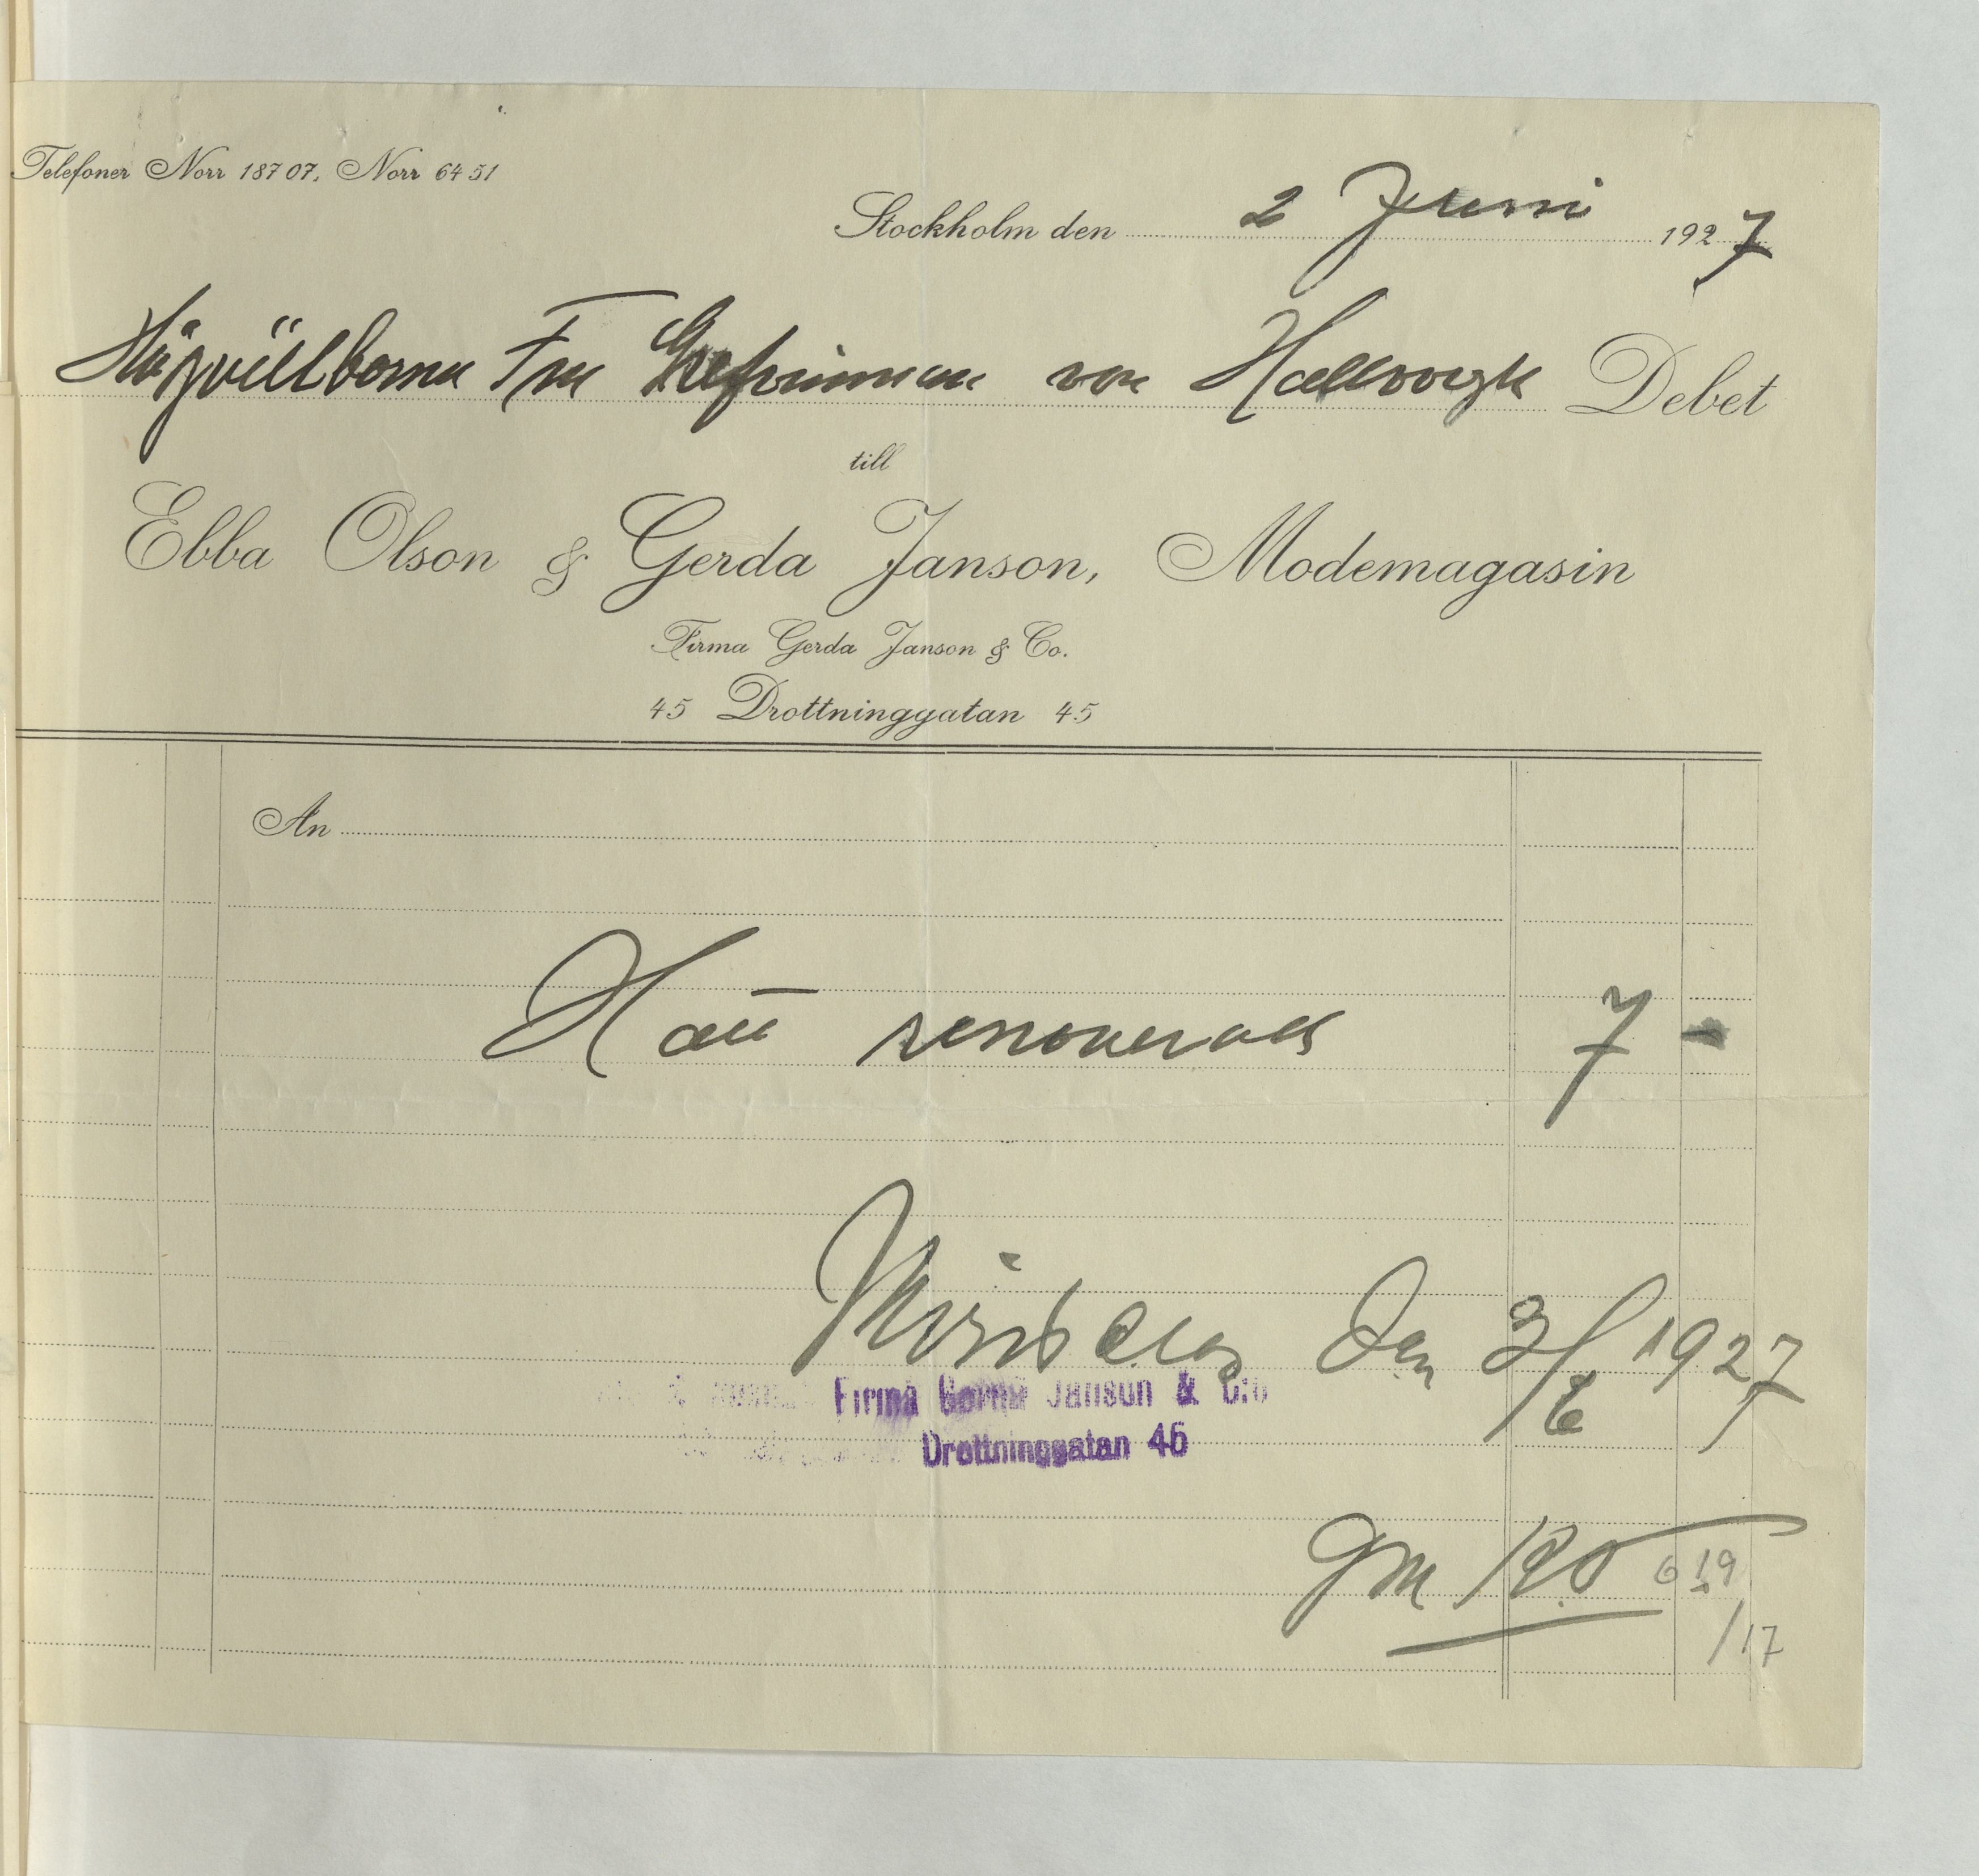 Telefoner Norr 187 07, Norr 64 51
Stockholm den 2 Juni 1927
Högvällborna Fru Grefvinnan von Hallwyl Debet
till
Ebba Olson & Gerda Janson, Modemagasin
Firma Gerda Janson & Co.
45 Drottninggatan 45
An
Hatt renoverats 7 -
den 3/6 1927
Firma Gerda Janson & C:o
Drottninggatan 45
619
/17